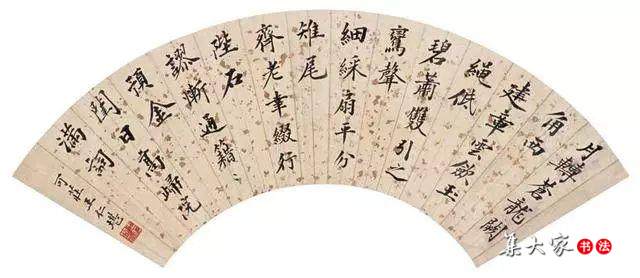 月轉蒼龍闕
角西
建章雲歛玉
繩低
碧蕭雙引之
鸞聲
細綵扇平分
雉尾
齊老幸綴行
陛石
謬慚通籍
預金
閨日高歸院
滿
可莊王仁堪
集大家书法